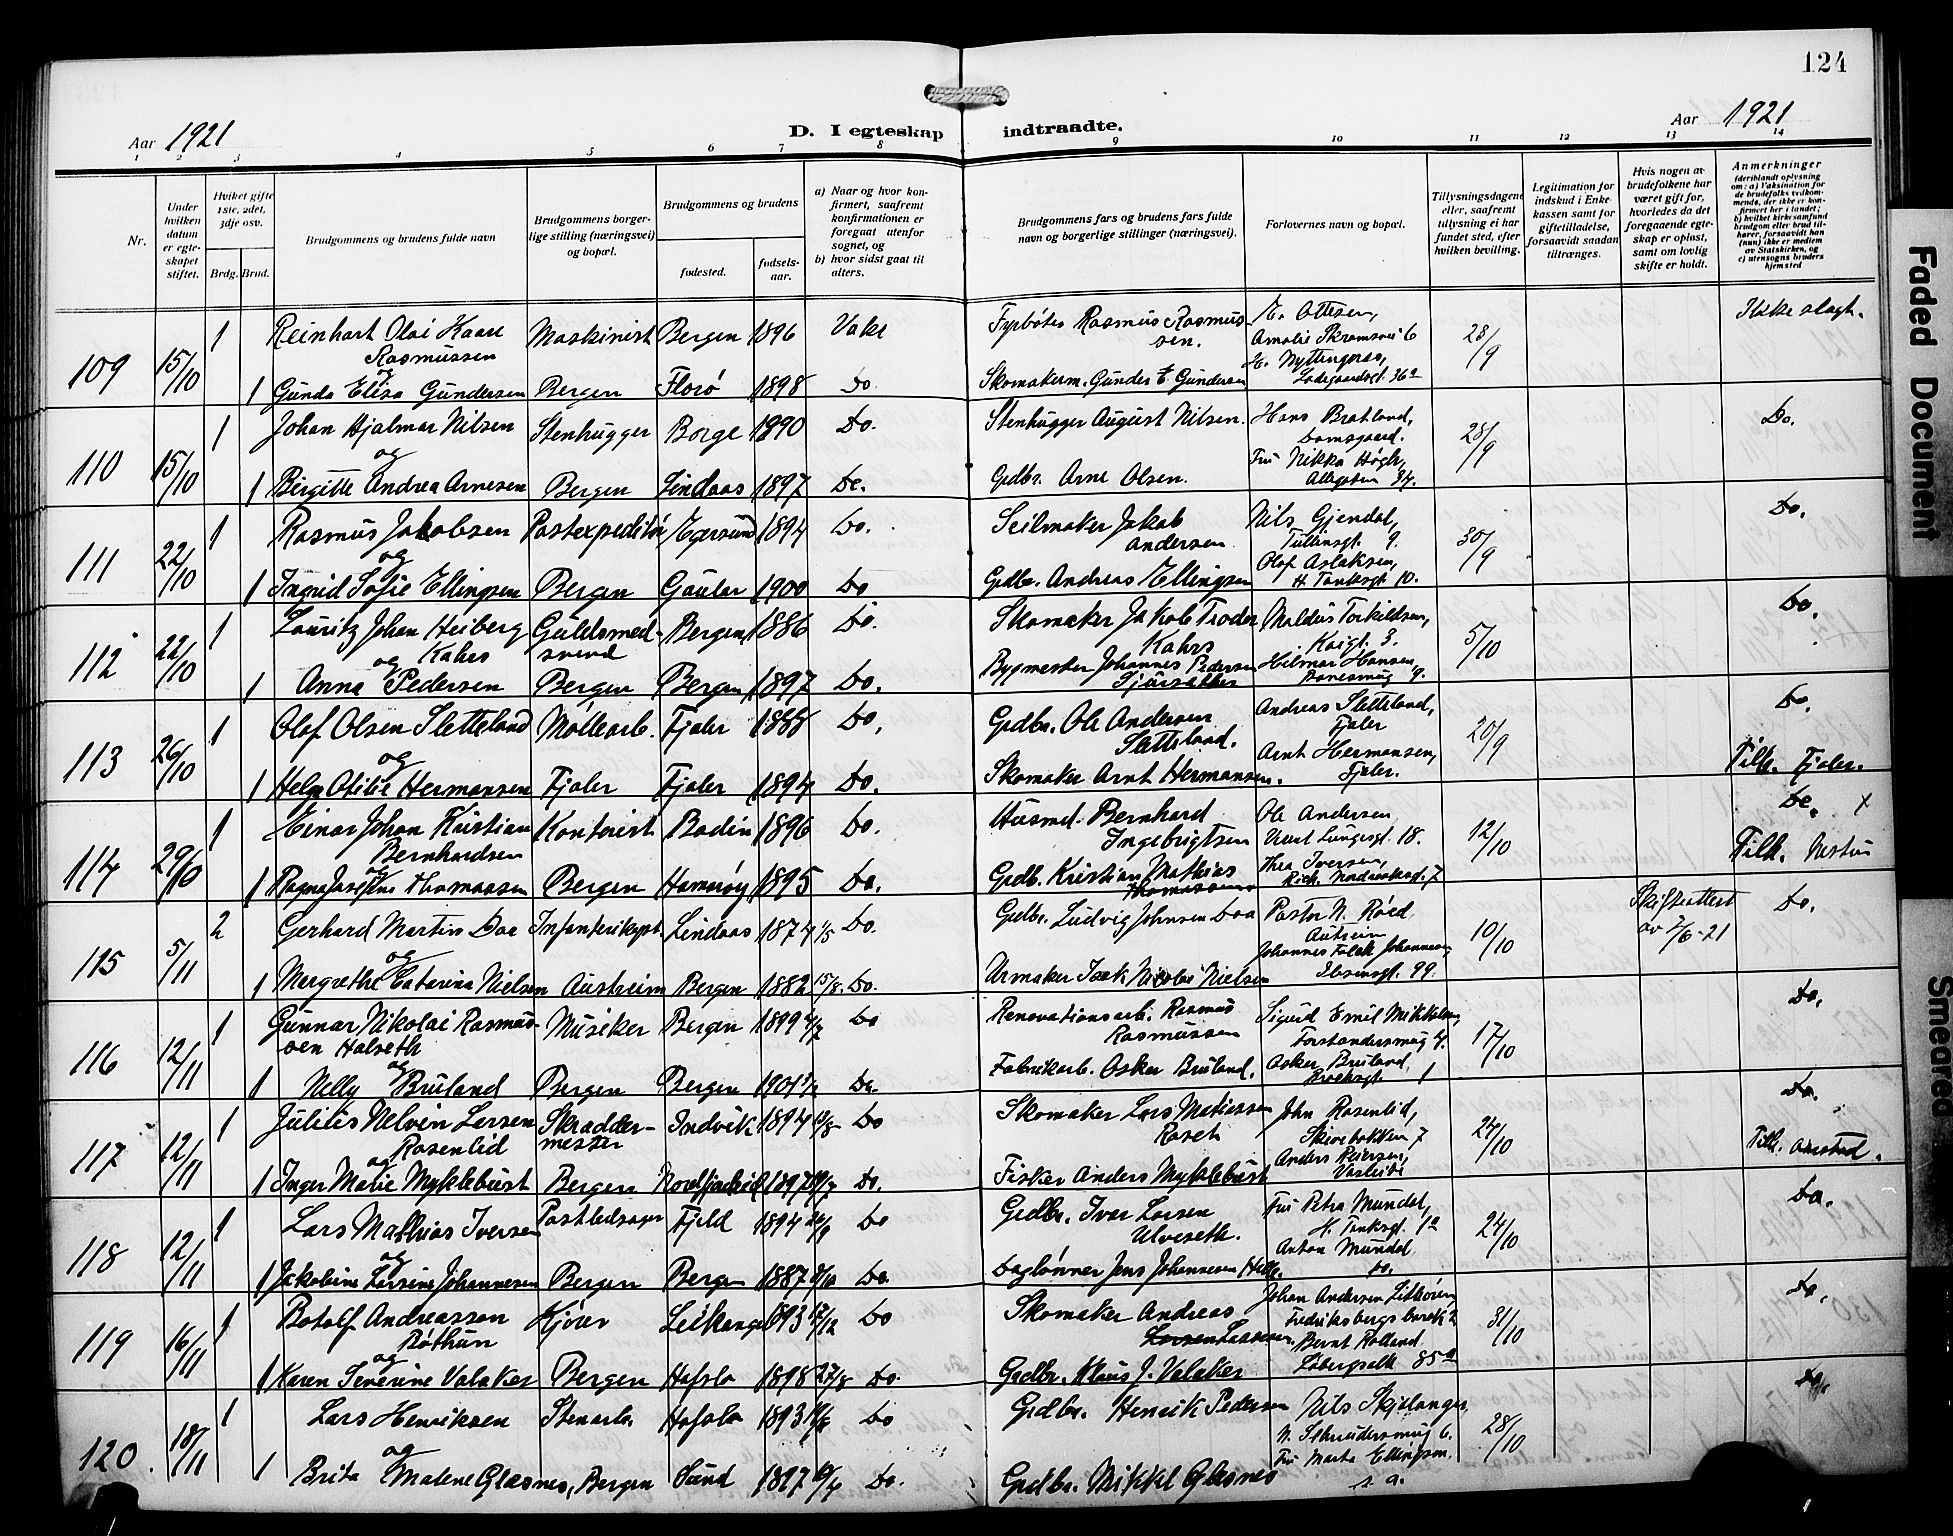 124
Aar 1921
D. I egteskap indtraadte.
Aar 1921
1 2 3 4 5 6 7 8 9 10 11 12 13 14
Nr.
Under hvilken datum er egteskapet stiftet.
Hvilket gifte 1ste, 2det, 3dje osv.
Brdg. Brud.
Brudgommens og brudens fulde navn
Brudgommens borgerlige stilling (næringsvei) og bopæl.
Brudgommens og brudens
fødested. fødselsaar.
a) Naar og hvor konfirmert, saafremt konfirmationen er foregaaet utenfor sognet, og
b) hvor sidst gaat til alters.
Brudgommens fars og brudens fars fulde navn og borgerlige stillinger (næringsvei).
Forlovernes navn og bopæl.
Tillysningsdagene eller, saafremt tillysning ei har fundet sted, efter hvilken bevilling.
Legitimation for indskud i Enkekassen samt for giftetilladelse, forsaavidt saadan tiltrænges.
Hvis nogen av brudefolkene har været gift før, hvorledes da det foregaaende egteskap er opløst, samt om lovlig skifte er holdt.
Anmerkninger
(deriblandt oplysning om: a) Vaksination for de brudefolks vedkommende, der ikke er konfirmert her i landet; b) hvilket kirkesamfund brudgom eller brud tilhører, forsaavidt han (hun) ikke er medlem av Statskirken, og c) utensogns bruders hjemsted
109 15/10 1 Reinhart Olai Kaare Rasmussen Maskinist Bergen 1896 Vake Fyrbøter Rasmus Rasmussen. E. Ottesen, Amalie Skramsvei 6 28/9 Ikke slegt.
og
1 Gunda Elisa Gundersen Bergen Florø 1898 Do. Skomakerm. Gunder E. Gundersen H. Nyttingnes, Ladegaardsgt. 36a
110 15/10 1 Johan Hjalmar Nilsen Stenhugger Borge 1890 Do. Stenhugger August Nilsen. Hans Bratland, Damsgaard. 28/9 Do.
og
1 Birgitte Andrea Arnesen Bergen Lindaas 1897 Do. Grdbr. Arne Olsen. Fru Nikka Høgh, Allegaten 34.
111 22/10 1 Rasmus Jakobsen Postexpeditør Egersund 1894 Do. Seilmaker Jakob Andersen Nils Gjendal, Tullinsgt. 9. 30/9 Do.
og
1 Ingrid Sofie Ellingsen Bergen Gaular 1900 Do Grdbr. Andreas Ellingsen Olaf Aslaksen, H. Tanksgt. 10.
112 22/10 1 Lauritz Johan Heiberg Kahrs Guldsmedsvend Bergen 1886 Do. Skomaker Jakob Kahrs Maldus Torkildsen, 3. 5/10 Do.
og
1 Anna Pedersen Bergen Bergen 1897 Do. Bygmester Johannes Pedersen Hilmar Hansen, 9.
113 26/10 1 Olaf Olsen Sletteland Møllearb. Fjaler 1888 Do. Grdbr. Ole Andersen Sletteland. Andreas Sletteland, Fjaler 20/9 Do.
og
1 Helga Otilie Hermansen Fjaler Fjaler 1894 Do. Skomaker Arnt Hermansen. Arnt Hermansen, Fjaler. Tilh. Fjaler.
114 29/10 1 Einar Johan Kristian Bernhardsen Kontorist Bodin 1896 Do. Husmd. Bernhard Ingebrigtsen Ole Andersen, 18. 12/10 Do. x
og
1 Ragna Josefine Thomassen Bergen Hamarøy 1895 Do. Grdb. Kristian Mathias Thomassen Thea Iversen, Rich. Nordraaksgt. 7 Tilh.
115 5/11 2 Gerhard Martin Daa Infanterikapt. Lindaas 1874 1/5 Do. Grdbr. Ludvig Johnsen Daa Pastor N. Røed, Austreim 10/10 Skifteattest av 7/6-21 Do.
og
1 Margrethe Catarina Nielsen Austreim Bergen 1882 15/8. Do. Urmaker Isak Nicolai Nielsen Johannes Falck Johannesen, Ibsensgt. 99.
116 12/11 1 Gunnar Nikolai Rasmussen Halseth Musiker Bergen 1899 Do Renovationsarb. Rasmus Rasmussen Sigurd Emil Mikkelsen, Forstandersmug 4. 17/10 Do.
og
1 Nelly Bruland Bergen Bergen 1901 Do. Fabrikarb. Oskar Bruland. Oskar Bruland, 1
117 12/11 1 Julius Nelvin Larsen Rosenlid Skræddermester Indvik 1894 Do Skomaker Lars Matiassen Roset John Rosenlid, Skivebakken 7 24/10 Do.
og
1 Inger Malie Myklebust Bergen 1897 Do. Fisker Anders Myklebust Anders Peiersen, Tilh. Aarstad.
118 12/11 1 Lars Mathias Iversen Postledsager Fjeld 1894 Do Grdbr. Ivar Larsen Ulveseth. Fru Petra Mundal, H. Tanksgt. 12 24/10 Do.
og
1 Jakobine Larsine Johannesen Bergen Bergen 1887 Do. Daglønner Jens Johannesen Anton Mundal, Do.
119 16/11 1 Botolf Andreassen Røthun Kjører Leikanger 1893 17/12 Do Skomaker Andreas Larsen Lassesen, Johan Andersen 2 31/10 Do.
og
1 Karen Severine Valaker Bergen Hafslo 1898 27/8 Do. Grdbr. Klaus J. Valaker Bernt Rolland, 85a
120. 18/11 1 Lars Henriksen Stenarb. Hafslo 1893 Do Grdbr. Henrik Pedersen Nils Skjelanger, N. Schreudersmug 6. 28/10 Do.
og
1 Brita Malene Glæsnes, Bergen Sund 1897 Do. Grdbr. Mikkel Glesnes Fru Marta Ellingsen. s. a.
Faded Document
Smeared